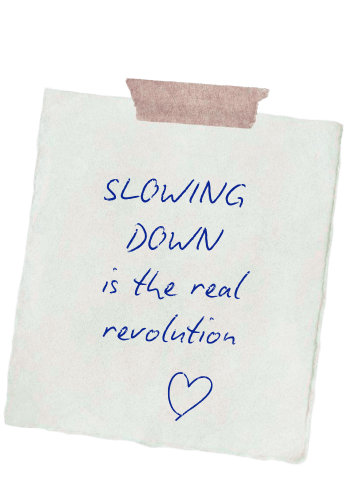 SLOWING
DOWN
is the real
revolution